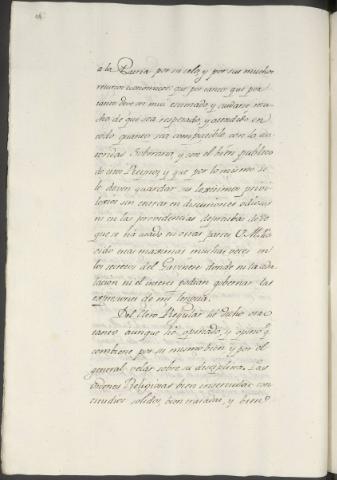 a la Patria por su celo, y por sus muchos
recursos economicos: que por tanto que por
tanto deve ser mui estimado, y cuidarse mu
cho de que sea respetado, y atendido en
todo quanto sea compatible con la au
toridad Soberana, y con el bien publico
de estos Reynos y que por lo mismo se
le deven guardar sus legitimos privi
legios sin entrar en discusiones odiosas
ni en las providencias depresibas de
que se ha usado en otras partes. V.M. ha
oido estas maximas muchas veces en
los secretos del Gavinete donde ni la adu
lacion ni el interes podian gobernar las
expresiones de mi lengua.
Del Clero Regular he dicho otro
tanto, aunque he opinado, y opino q.
combiene por su mismo bien y por el
general velar sobre su disciplina. Las
Ordenes Religiosas bien instruidas con
estudios solidos, bien tratadas, y bien